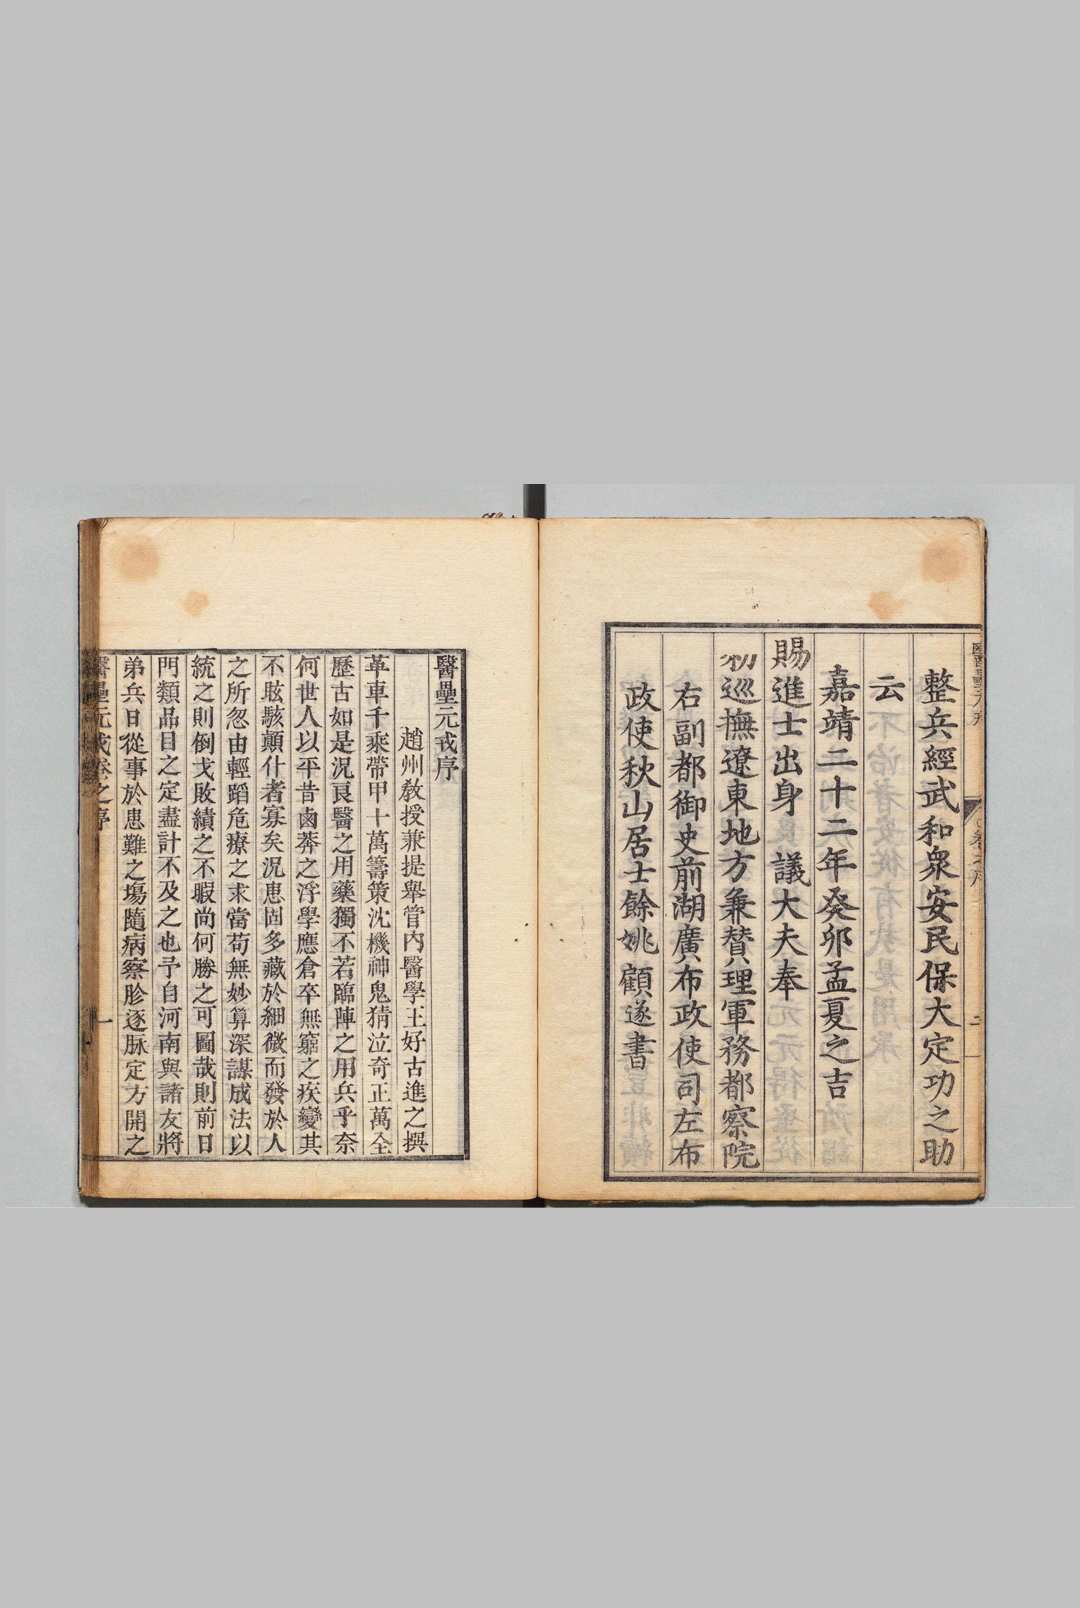 整兵經武和衆安民保大定功之助
云
嘉靖二十二年癸卯孟夏之吉
賜進士出身 議大夫奉
勑巡撫遼東地方兼贊理軍務都察院
右副都御史前湖廣布政使司左布
政使秋山居士餘姚顧遂書
醫壘元戎序
趙州教授兼提舉管內醫學王好古進之撰
革車千乘帶甲十萬籌策沈機神鬼猜泣奇正萬全
歷古如是況良醫之用藥獨不若臨陣之用兵乎奈
何世人以平昔鹵莽之浮學應倉卒無窮之疾變其
不眩駭顛仆者寡矣況患固多藏於細微而發於人
之所忽由輕蹈危療之求當苟無妙算深謀成法以
統之則倒戈敗績之不暇尚何勝之可圖哉則前日
門類品目之定盡計不及之也予自河南與諸友將
弟兵日從事於患難之場隨病察胗逐脉定方開之
醫壘元戎卷之序
一